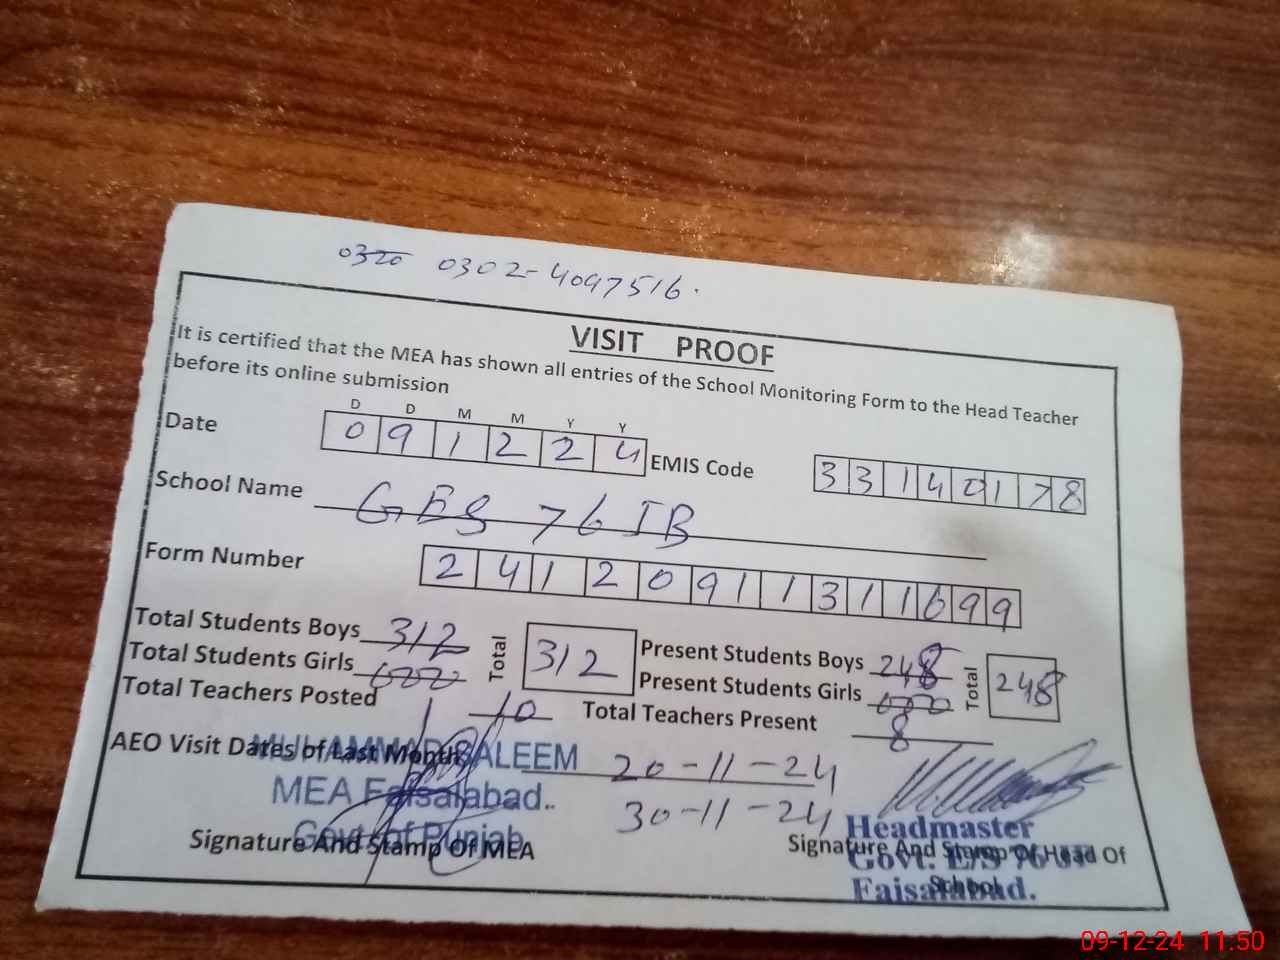 0320 0302-4097516.
VISIT PROOF
It is certified that the MEA has shown all entries of the School Monitoring Form to the Head Teacher
before its online submission
D D M M Y Y
Date 0 9 1 2 2 4 EMIS Code 3 3 1 4 0 1 7 8
School Name GES 76 JB
Form Number 2 4 1 2 0 9 1 1 3 1 1 6 9 9
Total Students Boys 312 Total 312 Present Students Boys 248 Total 248
Total Students Girls 000 Present Students Girls 000
Total Teachers Posted 10 Total Teachers Present 8
AEO Visit Dates of Last Month 20-11-24
30-11-24
MUHAMMAD SALEEM
MEA Faisalabad.
Govt. of Punjab
Signature And Stamp Of MEA
Headmaster
Govt. E/S 76
Faisalabad.
Signature And Stamp Of Head Of
School
09-12-24 11:50